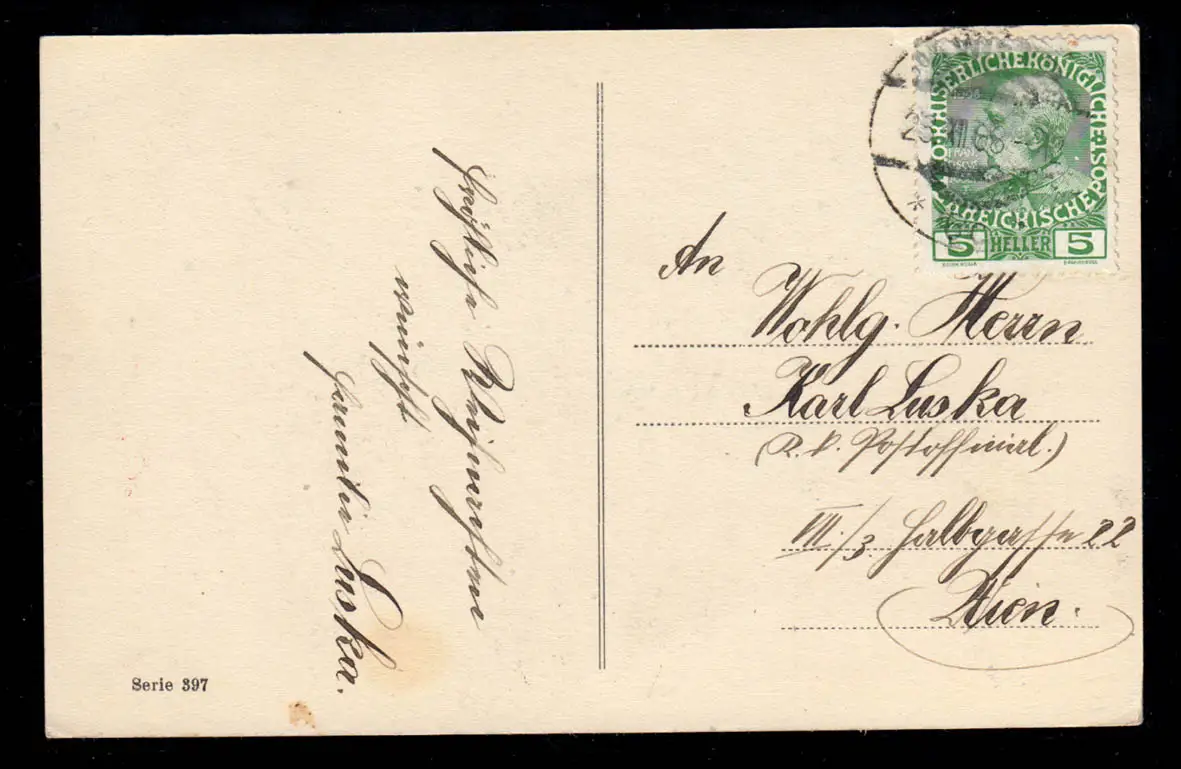 Fröhliche Weihnachten
wünscht
Familie Luska.
Serie 397
KAISERLICHE KÖNIGLICHE
ÖSTERREICHISCHE POST
5 HELLER 5
An
Wohlg. Herrn
Karl Luska
(K. k. Postoffizial.)
VII./3. Halbgasse 22
Wien.